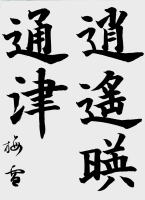 逍遙暎
通津
梅雪